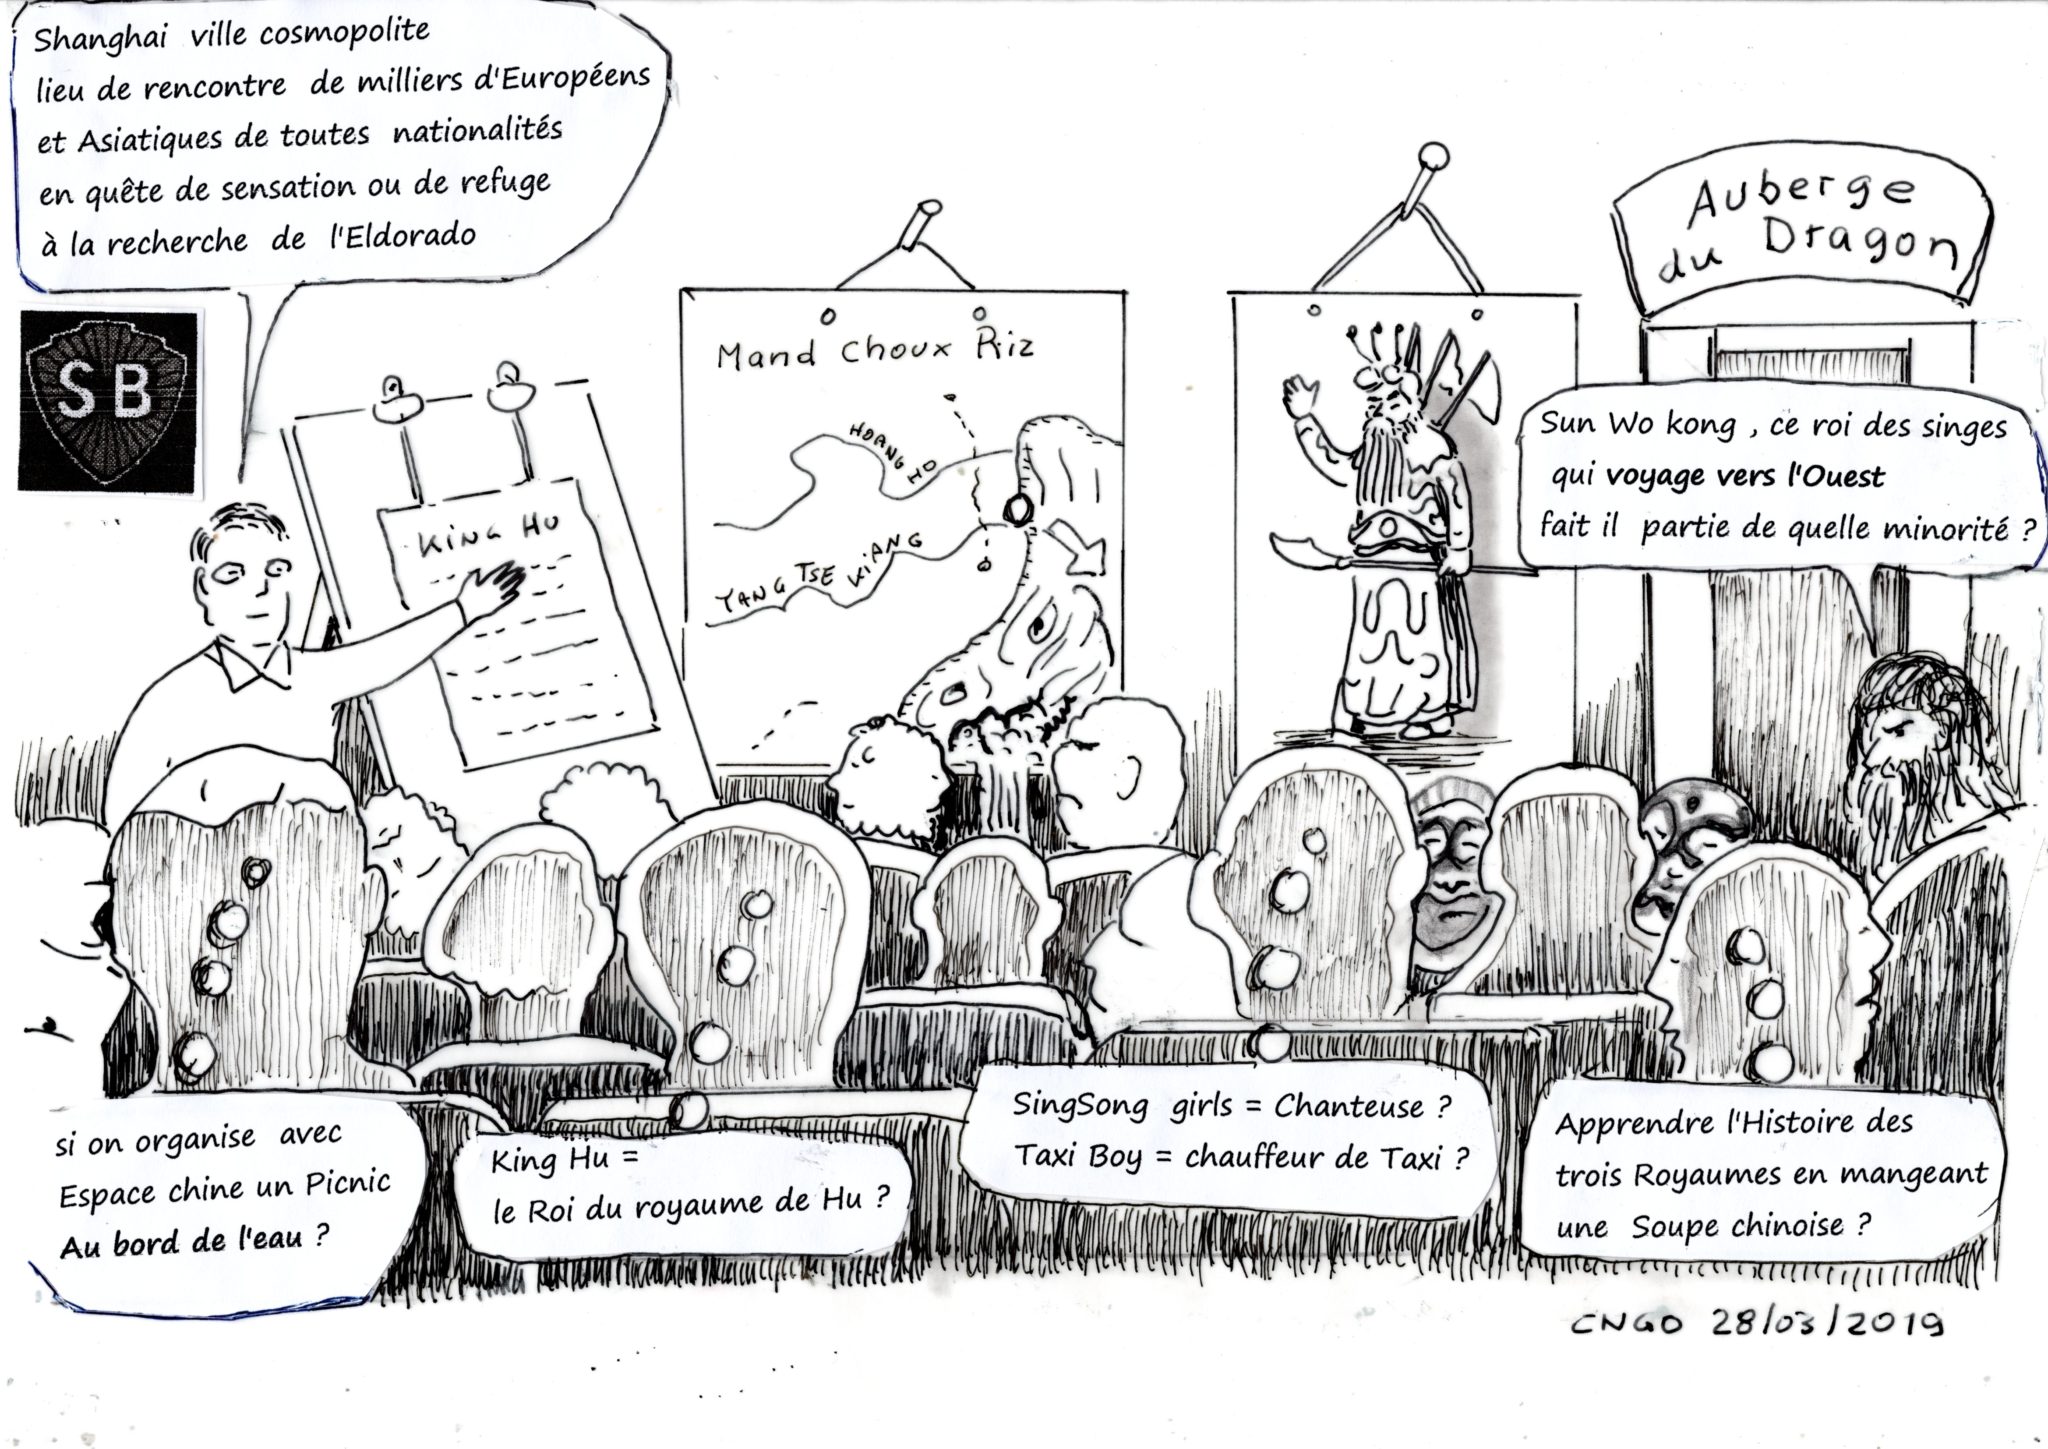 Shanghai ville cosmopolite
lieu de rencontre de milliers d'Européens
et Asiatiques de toutes nationalités
en quête de sensation ou de refuge
à la recherche de l'Eldorado
SB
KING HU
Mand Choux Riz
HOANG HO
YANG TSE KiANG
Auberge
du Dragon
Sun Wo kong , ce roi des singes
qui voyage vers l'Ouest
fait il partie de quelle minorité ?
si on organise avec
Espace chine un Picnic
Au bord de l'eau ?
King Hu =
le Roi du royaume de Hu ?
SingSong girls = Chanteuse ?
Taxi Boy = chauffeur de Taxi ?
Apprendre l'Histoire des
trois Royaumes en mangeant
une Soupe chinoise ?
CNGO 28/03/2019